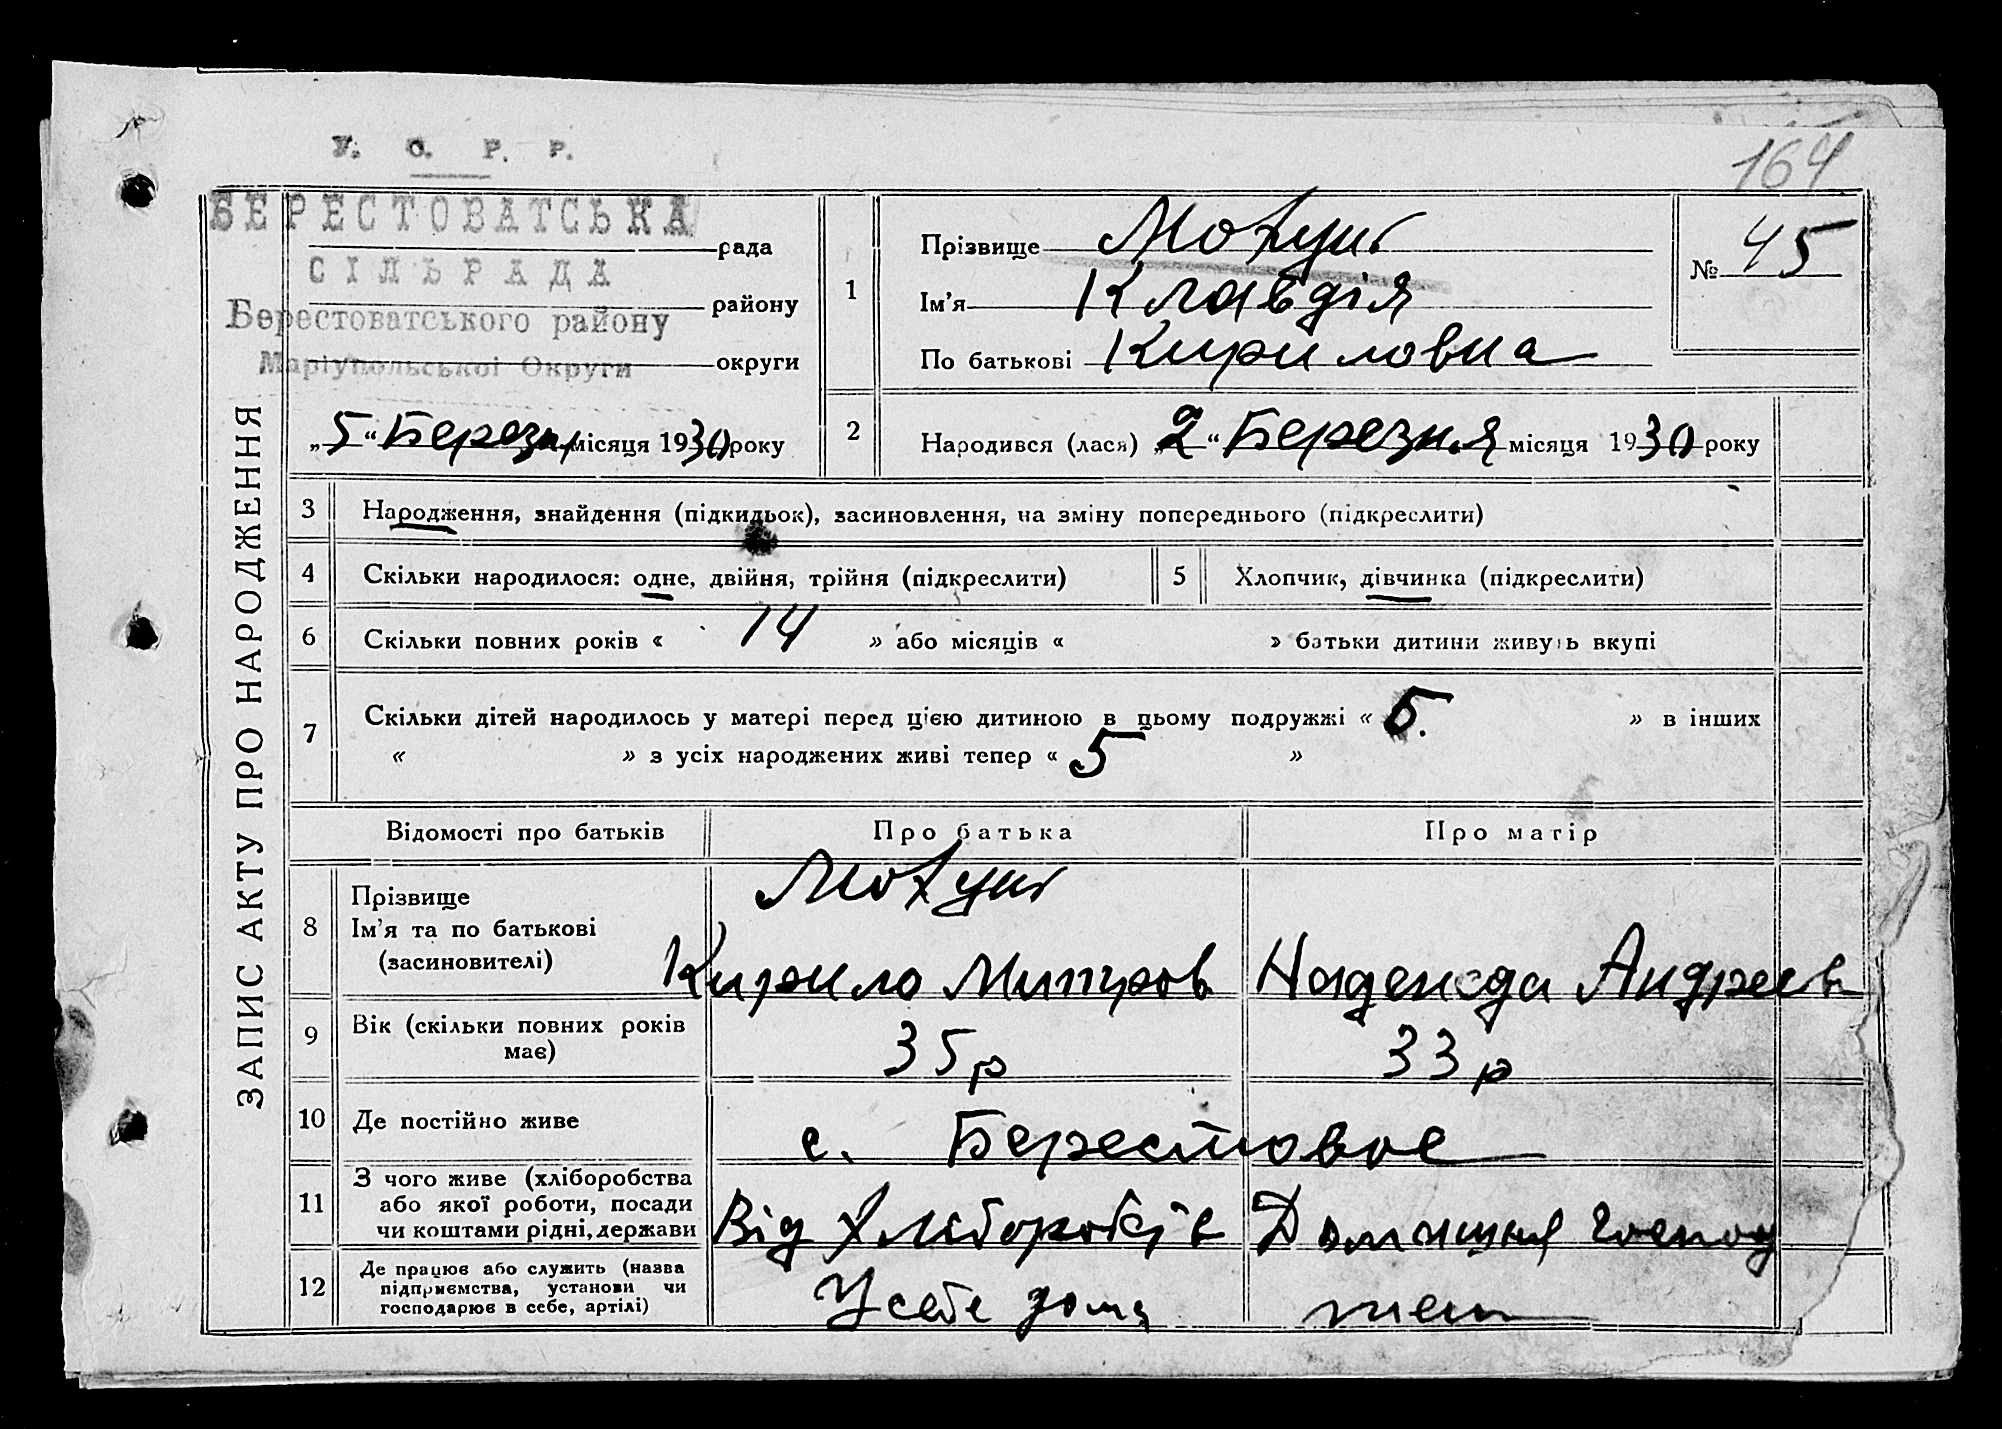 У. С. Р. Р.
164
БЕРЕСТОВАТСЬКА
рада
СІЛЬРАДА
району
Берестоватського району
Маріупольської Округи
округи
„5“ Березня місяця 1930 року
ЗАПИС АКТУ ПРО НАРОДЖЕННЯ
1
Прізвище
Ім'я Клавдія
По батькові Кириловна
№ 45
2 Народився (лася) „2“ Березня місяця 1930 року
3 Народження, знайдення (підкидьок), засиновлення, на зміну попереднього (підкреслити)
4 Скільки народилося: одне, двійня, трійня (підкреслити)
5 Хлопчик, дівчинка (підкреслити)
6 Скільки повних років « 14 » або місяців « » батьки дитини живуть вкупі
7 Скільки дітей народилось у матері перед цією дитиною в цьому подружжі « 5. » в інших
« » з усіх народжених живі тепер « 5 »
Відомості про батьків Про батька Про матір
8 Прізвище
Ім'я та по батькові
(засиновителі)
Кирило Митров Надежда Андреев
9 Вік (скільки повних років
має)
35 р 33 р
10 Де постійно живе с. Берестовое
11 З чого живе (хліборобства
або якої роботи, посади
чи коштами рідні, держави
Від Домашня господ
12 Де працює або служить (назва
підприємства, установи чи
господарює в себе, артілі)
У себе дома теж